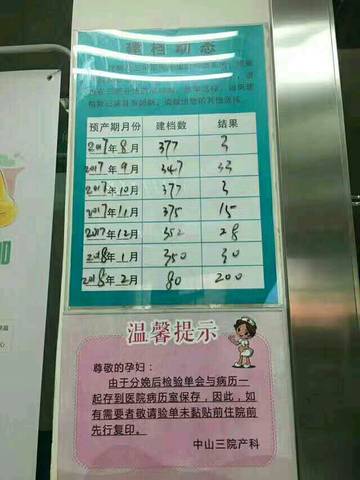 建档动态
预产期月份 建档数 结果
2017年8月 377 3
2017年9月 347 33
2017年10月 377 3
2017年11月 375 15
2017年12月 352 28
2018年1月 350 30
2018年2月 80 200
温馨提示
尊敬的孕妇：
由于分娩后检验单会与病历一
起存到医院病历室保存，因此，如
有需要者敬请验单未黏贴前住院前
先行复印。
中山三院产科